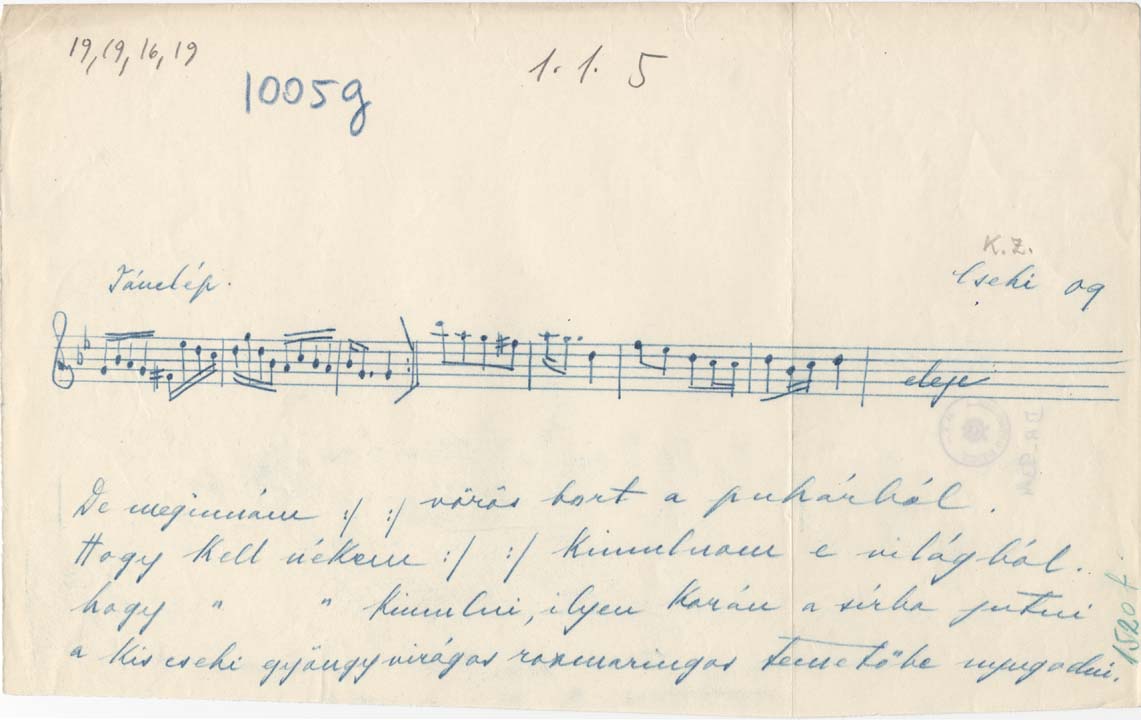 19, 19, 16, 19
1005g
1. 1. 5
K.Z.
Tánclép.
Csehi 09
eleje
De meginnám :/ :/ vörös bort a puhárból.
Hogy kell nékem :/ :/ kimulnom e világból.
hogy " " kimulni, ilyen korán a sírba jutni
a kiscsehi gyöngyvirágos rozmaringos temetőbe nyugodni.